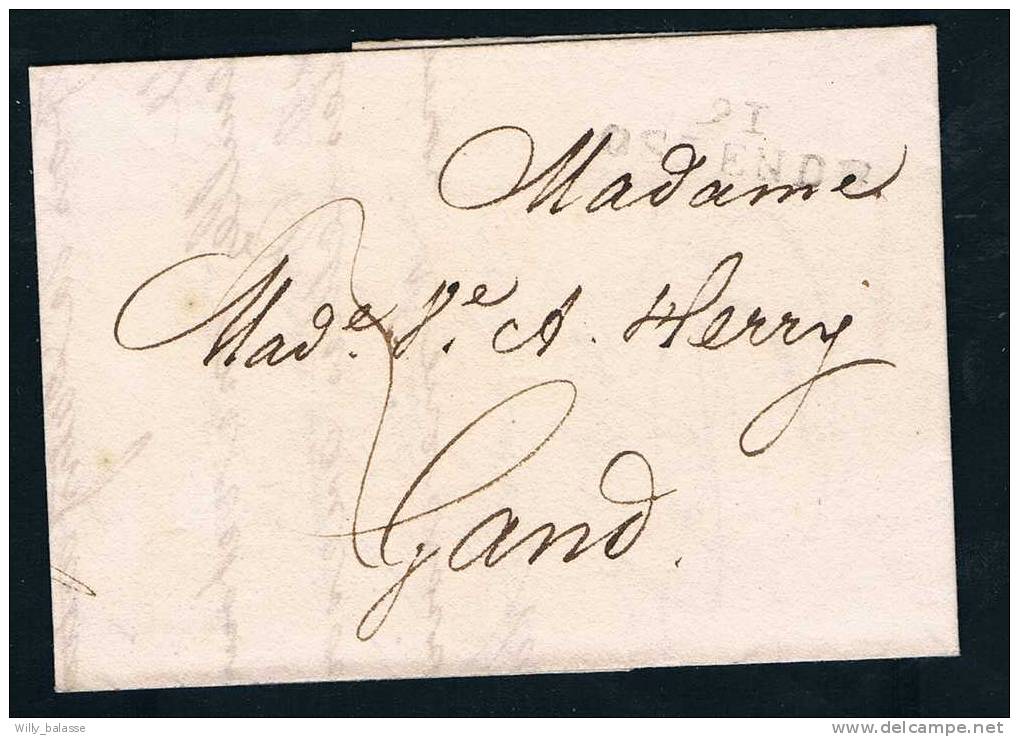 91
OSTENDE
Madame
Made. Ve. A. Herry
Gand.
Willy_balasse
delcampe.net